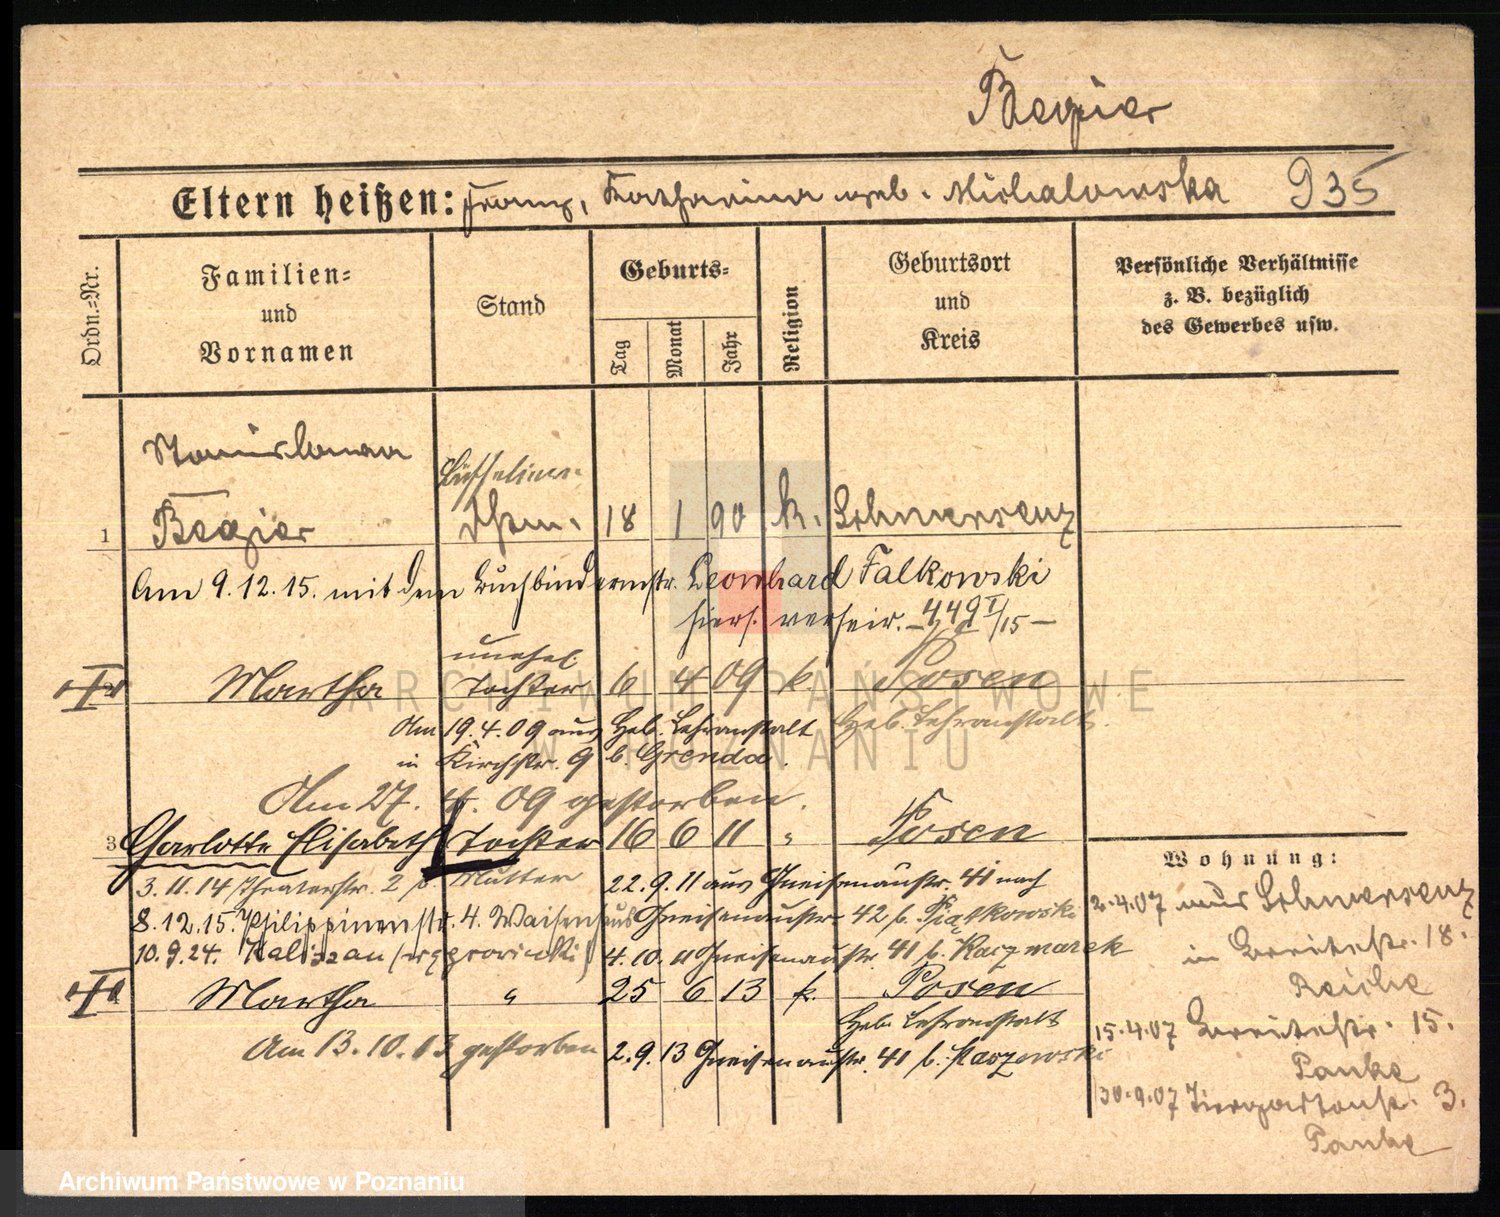 Bezier
Eltern heißen: Franz, Katharina geb. Michalowska 935
Ordn.-Nr.
Familien- und Vornamen
Stand
Geburts-
Tag
Monat
Jahr
Religion
Geburtsort und Kreis
Persönliche Verhältnisse z. B. bezüglich des Gewerbes usw.
Stanislawa
1 Bezier 18 1 90 k. Schwersenz
Am 9.12.15. mit dem Buchbindermstr. Leonhard Falkowski
hiers. verheir. 449 I/15 —
unehel.
Martha Tochter 6 4 09 k. Posen
Am 19.4.09 aus Heb. Lehranstalt Heb. Lehranstalt.
in Kirchstr. 9 b. Grenda.
Am 27.4.09 gestorben.
3 Charlotte Elisabeth Tochter 16 6 11 " Posen
3.11.14 Theaterstr. 2 b. Mutter 22.9.11 aus Gneisenaustr. 41 nach
8.12.15. Philippinenstr. 4. Waisenhaus Gneisenaustr. 42 b. Piątkowski
10.9.24. Kaliszan 4.10.11 Gneisenaustr. 41 b. Kaczmarek
Martha " 25 6 13 k. Posen
Heb. Lehranstalt
Am 13.10.13 gestorben 2.9.13 Gneisenaustr. 41 b. Kaczewski
Wohnung:
2.4.07 aus Schwersenz
in Breitestr. 18.
Reiche
15.4.07 Breitestr. 15.
Panke
30.9.07 Tiergartenstr. 3.
Panke
ARCHIWUM PAŃSTWOWE
W POZNANIU
Archiwum Państwowe w Poznaniu